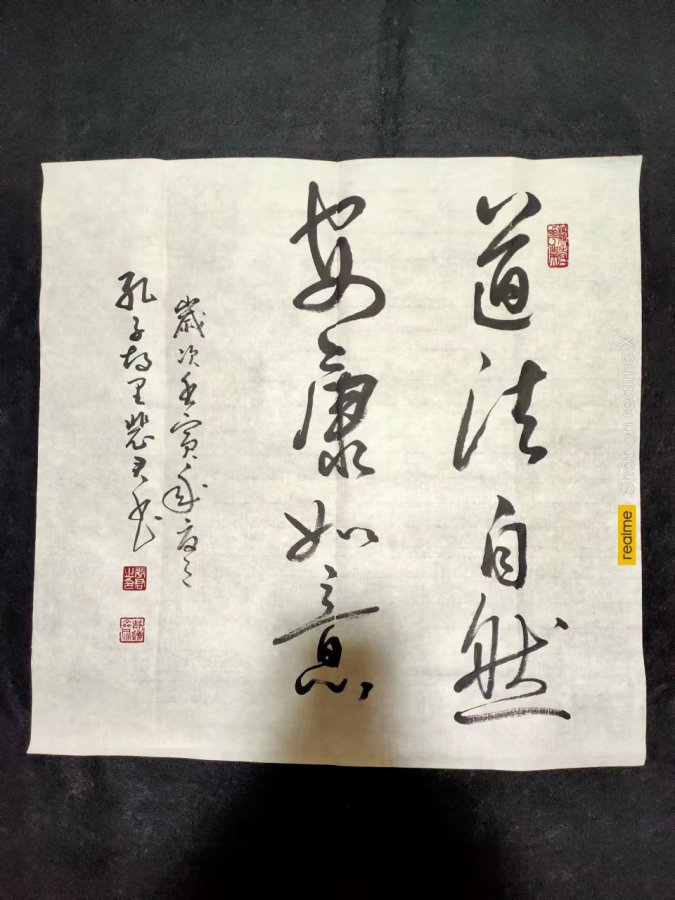 道法自然
安康如意
歲次壬寅年夏之
孔子故里裴君书
realme
Shot on realme X